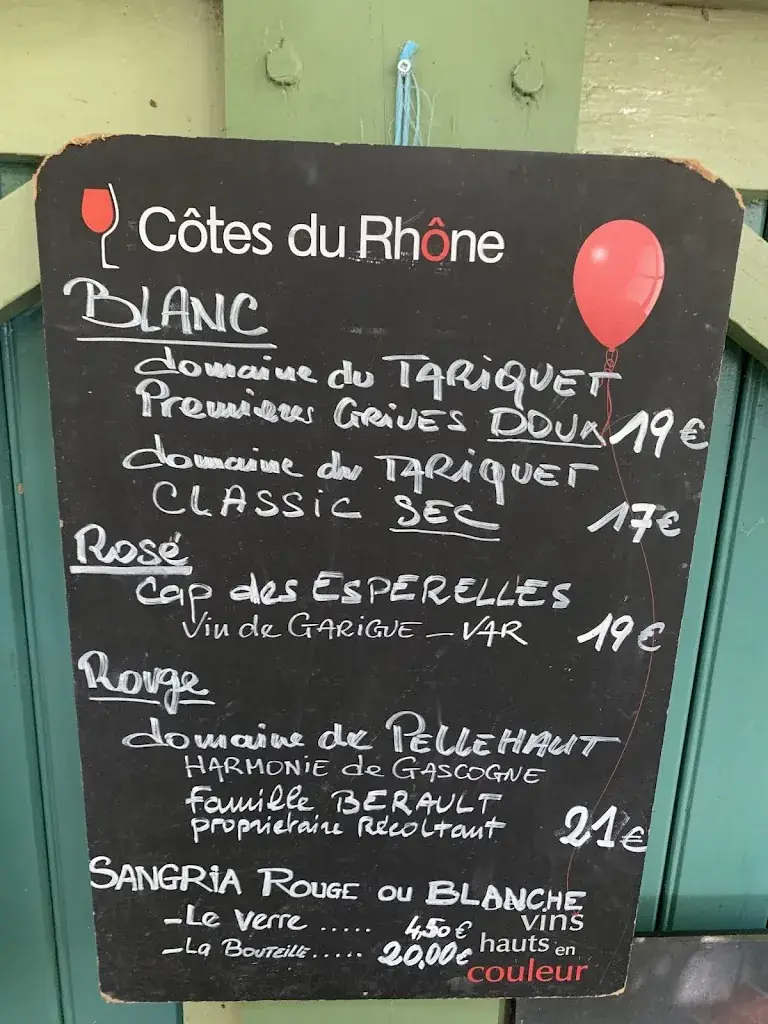 Côtes du Rhône
BLANC
domaine du TARIQUET
Premieres GRIVES DOUX 19€
domaine du TARIQUET
CLASSIC SEC 17€
Rosé
Cap des ESPERELLES
Vin de GARIGUE - VAR 19€
Rouge
domaine de PELLEHAUT
HARMONIE de GASCOGNE
famille BERAULT
proprietaire Récoltant 21€
SANGRIA ROUGE OU BLANCHE
- Le verre ..... 4,50€
- La BOUTEILLE ..... 20,00€
vins
hauts en
couleur